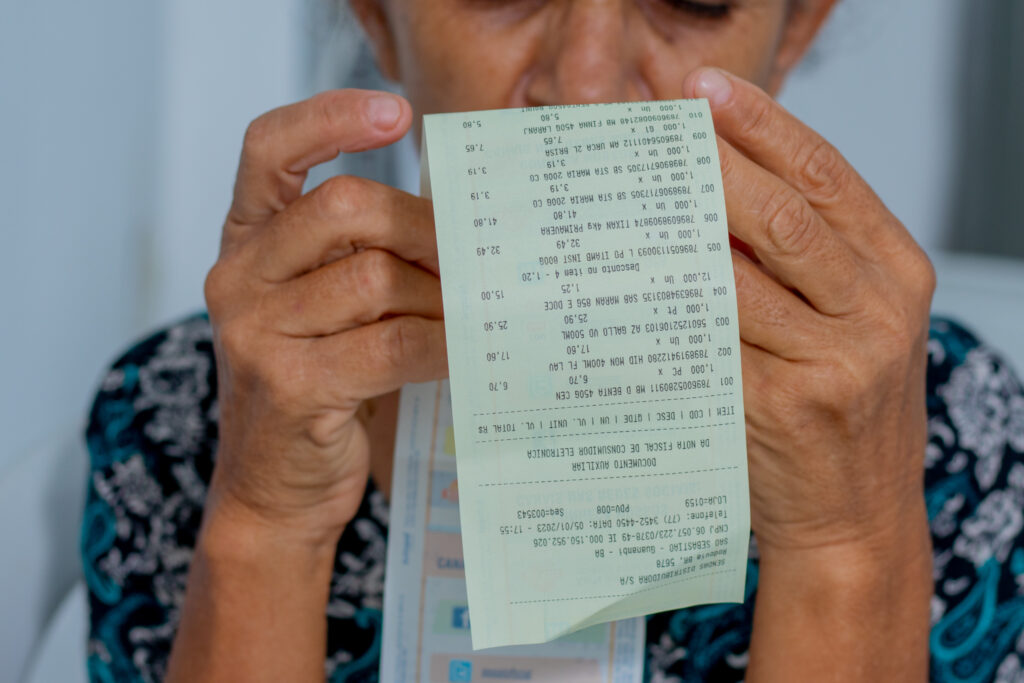 SENDAS DISTRIBUIDORA S/A
Rodovia BR, 5678
SAO SEBASTIAO - Guanambi - BA
CNPJ 06.057.223/0378-49 IE 000.150.952.026
Telefone: (77) 3452-4450 DATA: 05/01/2023 - 17:55
LOJA=0159 PDV=008 Seq=003543
DOCUMENTO AUXILIAR
DA NOTA FISCAL DE CONSUMIDOR ELETRONICA
ITEM | COD | DESC | QTDE | UN | VL. UNIT | VL. TOTAL R$
001 7896005280911 MB D BENTA 450G CEN
1,000 PC x 6,70 6,70
002 7898919412280 HID MON 400ML FL LAV
1,000 Un x 17,60 17,60
003 5601252106103 AZ GALLO VD 500ML
1,000 Pt x 25,90 25,90
004 7896394803135 SAB MARAN 85G E DOCE
12,000 Un x 1,25 15,00
Desconto no item 4 - 1,20
005 7896051130093 L PO ITAMB INST 800G
1,000 Un x 32,49 32,49
006 7896098909874 TIXAN 4kg PRIMAVERA
1,000 Un x 41,80 41,80
007 7898906717305 SB STA MARIA 200G CO
1,000 Un x 3,19 3,19
008 7898906717305 SB STA MARIA 200G CO
1,000 Un x 3,19 3,19
009 7896056401112 AM URCA 2L BRISA
1,000 Gl x 7,65 7,65
010 7896090082148 MB FINNA 450G LARANJ
1,000 Un x 5,80 5,80